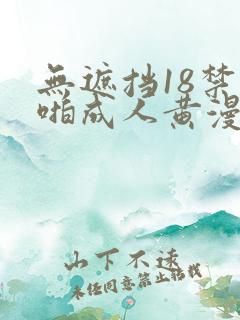 無遮挡18禁
啪成人黄漫
山下不远
未经同意禁止转载